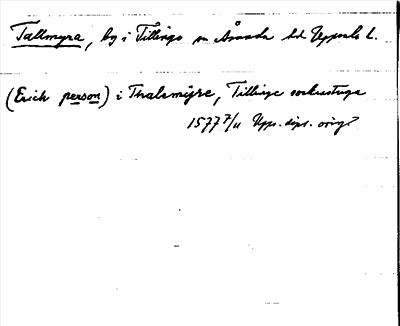 Tallmyra, by i Tillinge sn Åsunda hd Uppsala l.
(Erich person) i Thalemÿre, Tillinge sockustuga
1577 7/11 Upps. dipl. orig?